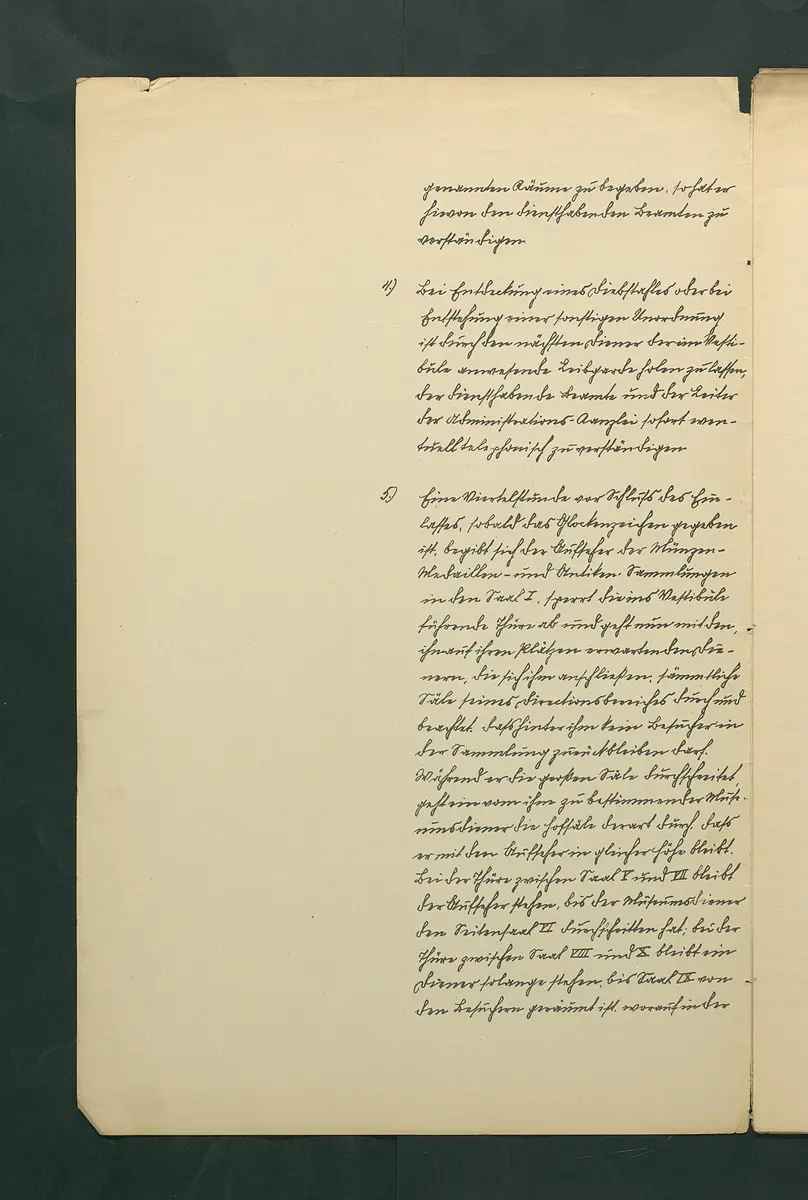 genannten Räume zu begeben, so hat er
hievon den diensthabenden Beamten zu
verständigen.
4.) Bei Entdeckung eines Diebstahles oder bei
Entstehung einer sonstigen Unordnung
ist durch den nächsten Diener der im Vesti-
bule anwesende Leibgarde holen zu lassen,
der diensthabende Beamte und der Leiter
der Administrations-Kanzlei sofort even-
tuell telephonisch zu verständigen.
5.) Eine Viertelstunde vor Schluß des Ein-
lasses, sobald das Glockenzeichen gegeben
ist, begibt sich der Aufseher der Münzen-
Medaillen- und Antiken Sammlungen
in den Saal I, sperrt die ins Vestibule
führende Thüre ab und geht nun mit den,
ihn auf ihren Plätzen erwartenden Die-
nern, die sich ihm anschließen, sämmtliche
Säle seines Directionsbereiches durch und
beachtet, dass hinter ihm kein Besucher in
der Sammlung zurückbleiben darf.
Während er die großen Säle durchschreitet,
geht ein vom ihm zu bestimmender Muse-
umsdiener die Hofsäle derart durch, dass
er mit den Aufseher in gleicher Höhe bleibt.
Bei der Thüre zwischen Saal V und VII bleibt
der Aufseher stehen, bis der Museumsdiener
den Seitensaal VI durchschritten hat; bei der
Thüre zwischen Saal VIII und X bleibt ein
Diener solange stehen, bis Saal IX von
den Besuchern geräumt ist, worauf in der